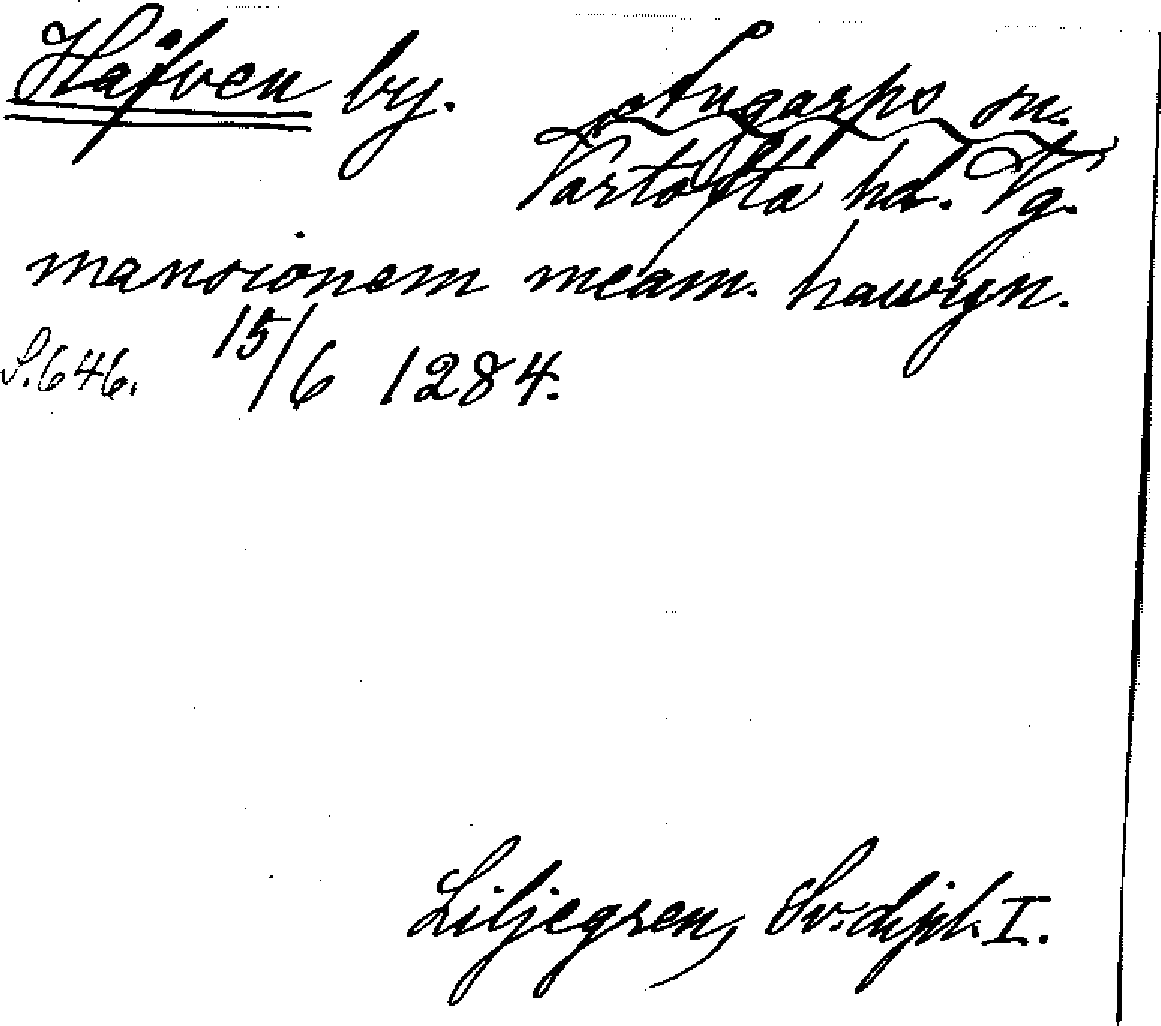 Håfven by.
Ångarps sn.
Vartofta hd. Vg.
mansionem meam. hawryn.
S.646. 15/6 1284.
Liljegren, Sv. dipl. I.